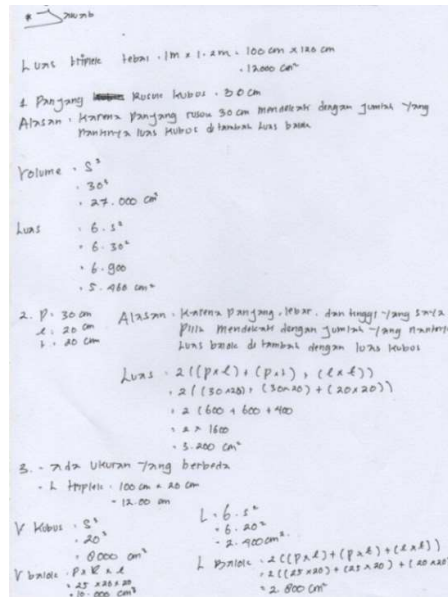 * Jawab
Luas triplek lebar = 1m x 1.2m = 100 cm x 120 cm
= 12000 cm²
1. Panjang rusuk kubus = 30 cm
Alasan = Karena panjang rusuk 30 cm mendekati dengan jumlah yang
nantinya luas kubus ditambah luas balok
Volume = S³
= 30³
= 27.000 cm³
Luas = 6. s²
= 6. 30²
= 6. 900
= 5.400 cm²
2. P = 30 cm
l = 20 cm
t = 20 cm
Alasan = Karena panjang, lebar, dan tinggi yang saya
pilih mendekati dengan jumlah yang nantinya
Luas balok ditambah dengan luas kubus
Luas = 2((pxl) + (pxt) + (lxt))
= 2((30x20) + (30x20) + (20x20))
= 2 (600 + 600 + 400
= 2 x 1600
= 3.200 cm²
3. - ada ukuran yang berbeda
- L triplek = 100 cm x 20 cm
= 12.00 cm
V kubus = S³
= 20³
= 8000 cm³
V balok = p x l x t
= 25 x 20 x 20
= 10.000 cm³
L = 6. s²
= 6. 20²
= 2.400 cm²
L balok = 2((pxl) + (pxt) + (lxt))
= 2((25x20) + (25x20) + (20x20)
= 2.800 cm²